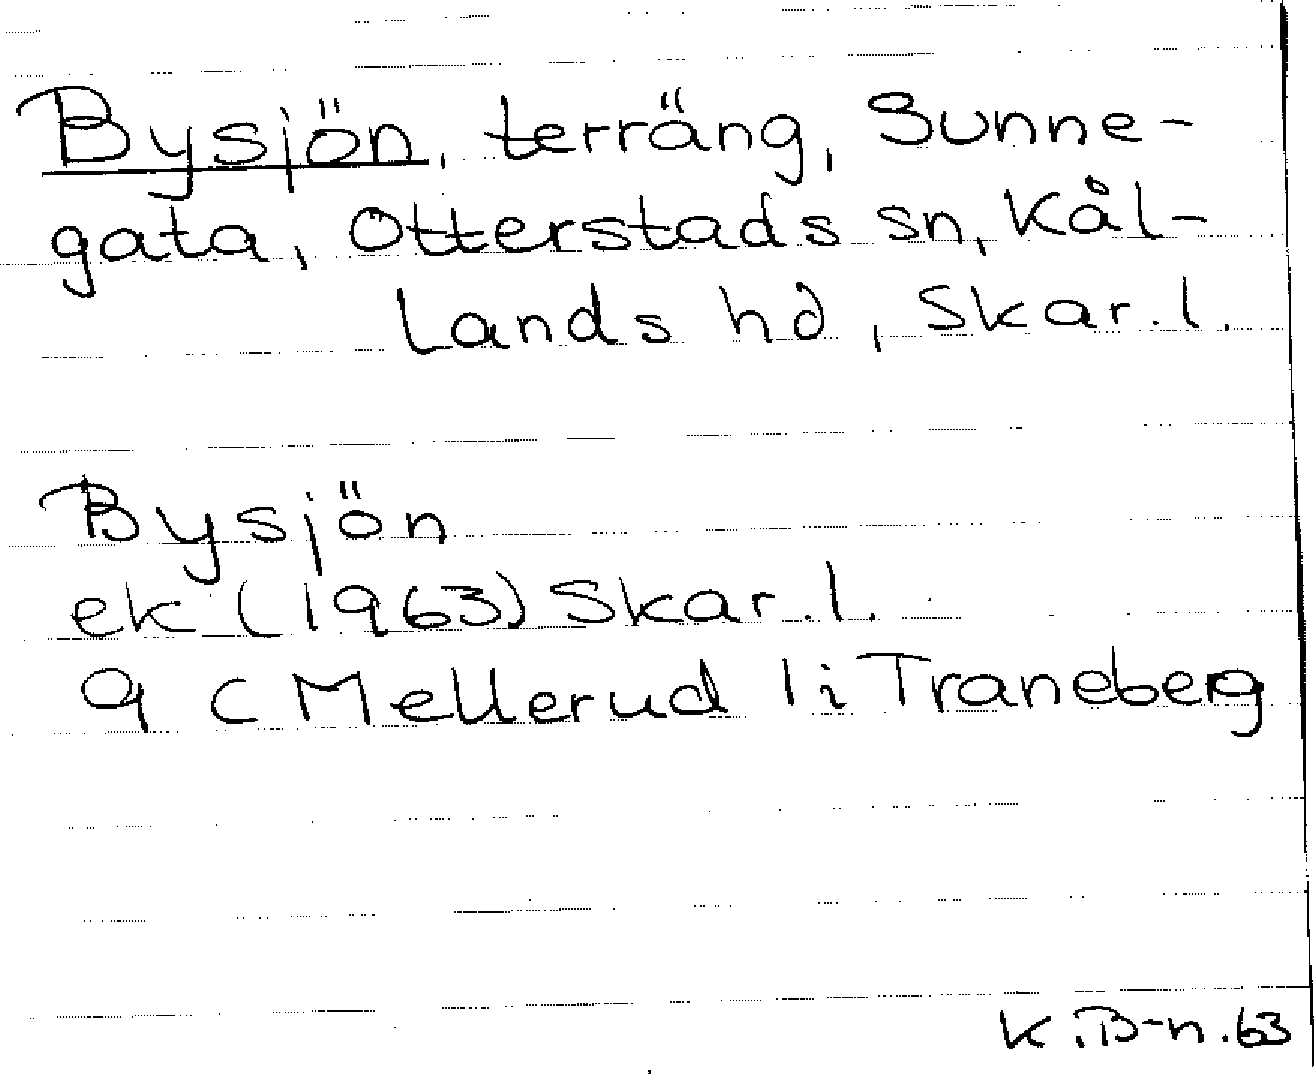 Bysjön, terräng, Sunne-
gata, Otterstads sn, Kål-
lands hd, Skar. l.
Bysjön
ek (1963) Skar. l.
9 C Mellerud 1 i Traneberg
K. B-n. 63